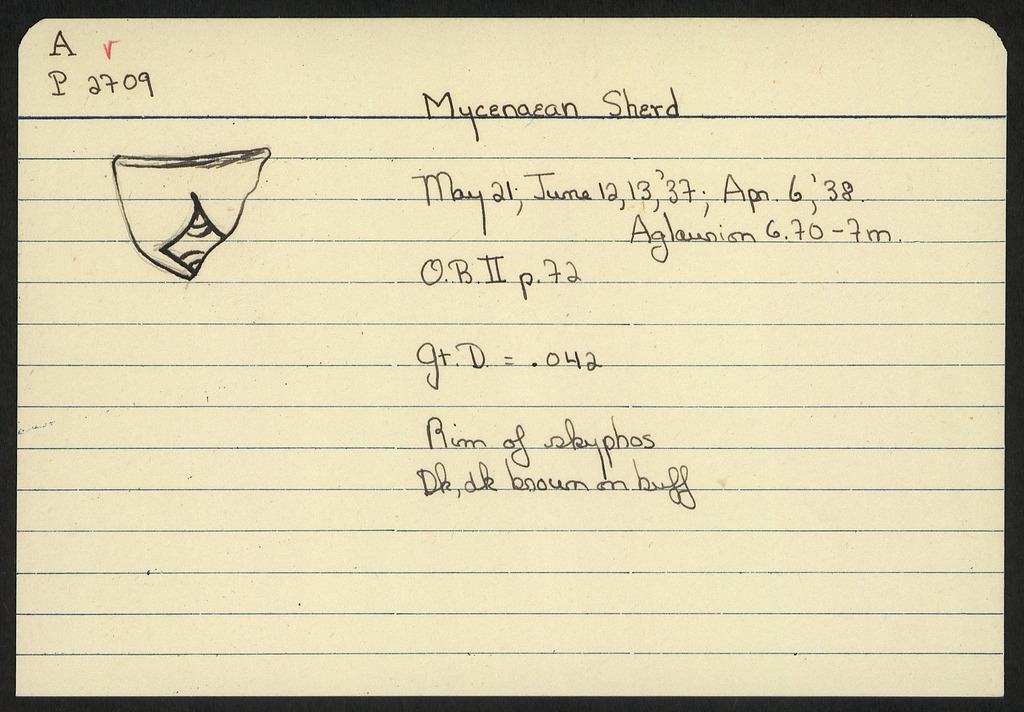 A
P 2709
Mycenaean Sherd
May 21, June 12, 13, '37; Apr. 6, '38.
Aglaurion 6.70-7m.
O.B. II p. 72
Gt. D. = .042
Rim of skyphos
Dk, dk brown on buff